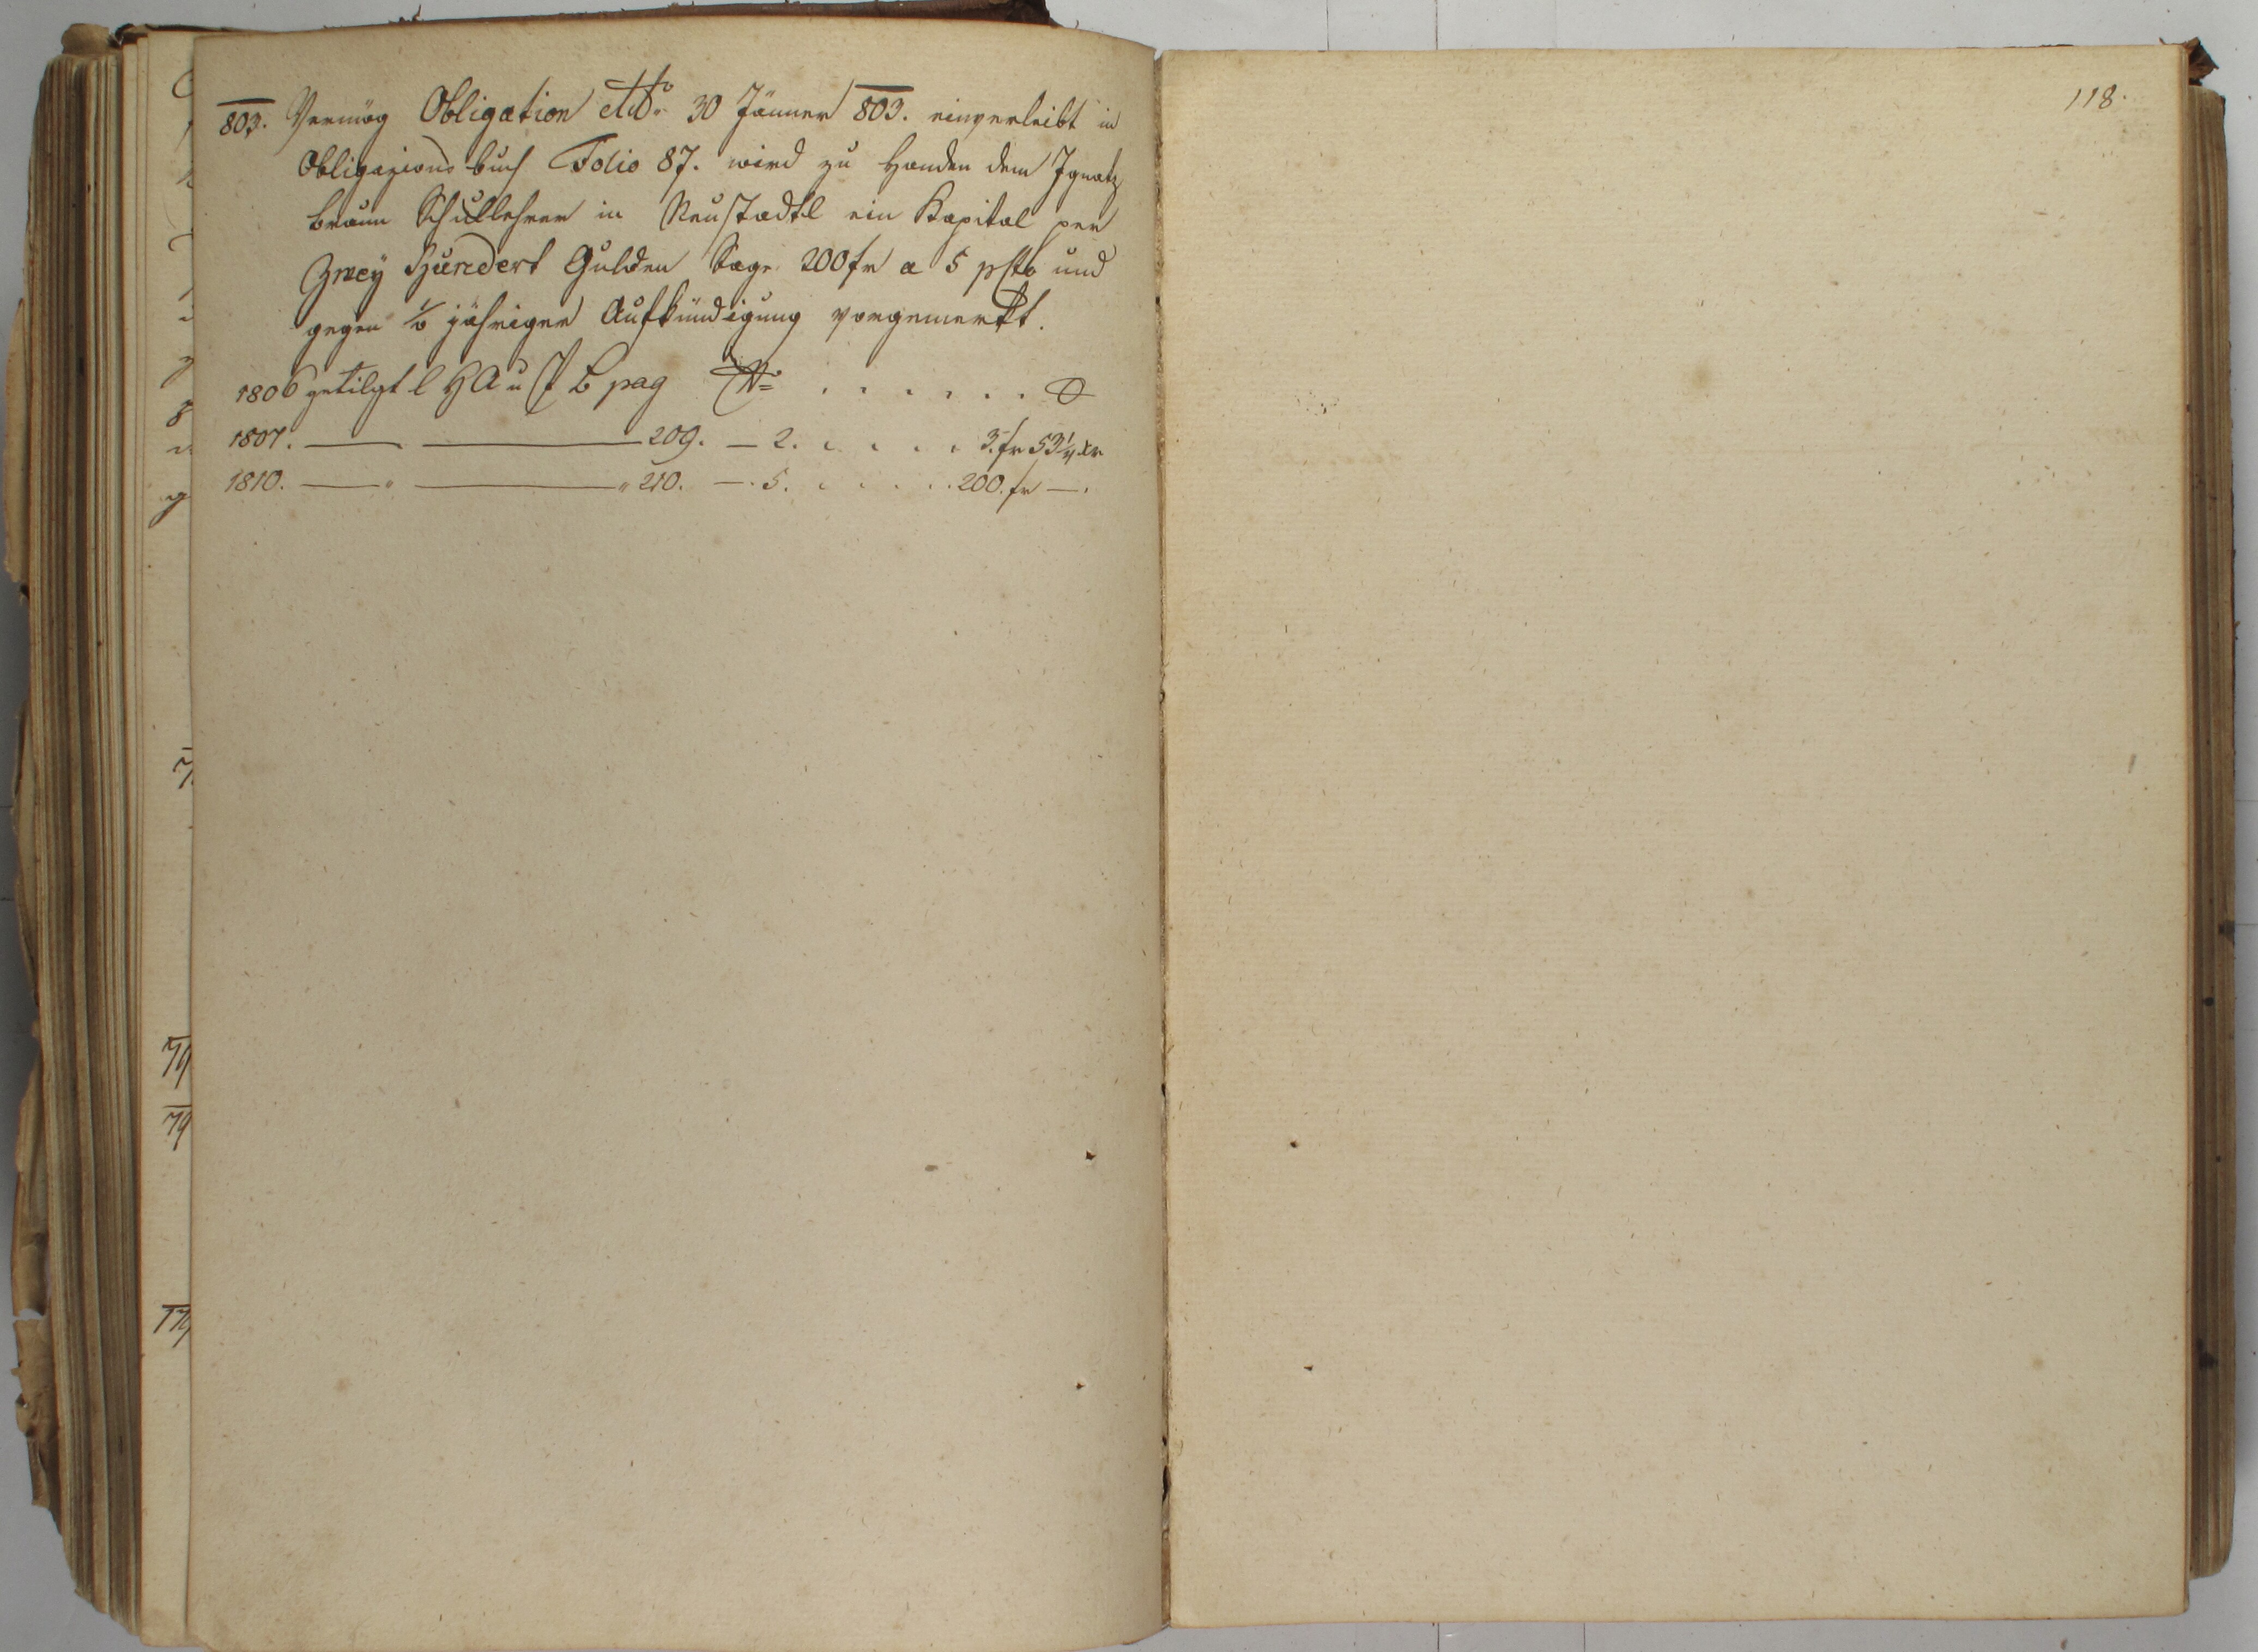 803. Vermög Obligation ddto 30 Jänner 803. einverleibt in
Obligazionsbuch Folio 87. wird zu Handen dem Ignatz
Braun Schullehrer in Neustadtl ein Kapital per
Zwey Hundert Gulden Sage 200 fr a 5 pcto und
gegen ½ jähriger Aufkündigung vorgemerkt.
1806 getilgt l H A u pag No . . . . . .
1807. — — 209. — 2. . . . . . 3. fr 53 ¼ xr
1810. — " — " 210. — . 5. . . . . . 200. fr — .
118.